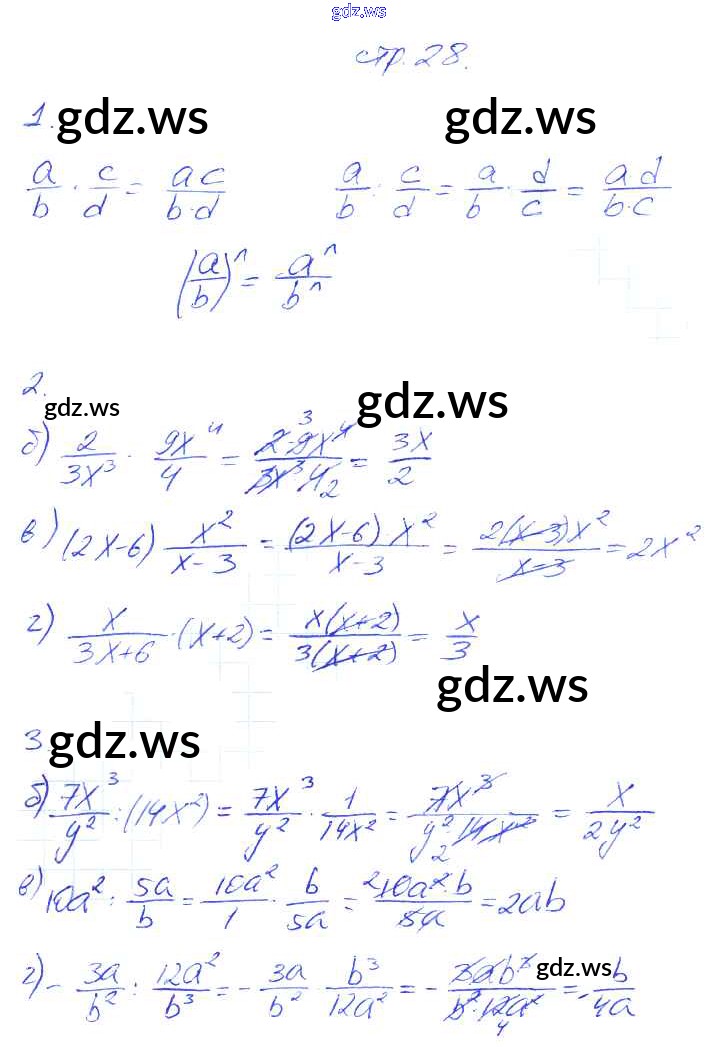 gdz.ws
стр. 28.
1. gdz.ws gdz.ws
a/b · c/d = ac/b·d a/b : c/d = a/b · d/c = ad/b·c
(a/b)^n = a^n/b^n
2. gdz.ws gdz.ws
б) 2/3x³ · 9x⁴/4 = 2·9x⁴/3x³·4 = 3x/2
в) (2x-6) x²/x-3 = (2x-6)x²/x-3 = 2(x-3)x²/x-3 = 2x²
г) x/3x+6 · (x+2) = x(x+2)/3(x+2) = x/3
gdz.ws
3. gdz.ws
б) 7x³/y² : (14x²) = 7x³/y² · 1/14x² = 7x³/y² 14x² = x/2y²
в) 10a² : 5a/b = 10a²/1 · b/5a = 10a²·b/5a = 2ab
г) - 3a/b² : 12a²/b³ = - 3a/b² · b³/12a² = - 3ab³/b²·12a² = - b/4a
gdz.ws